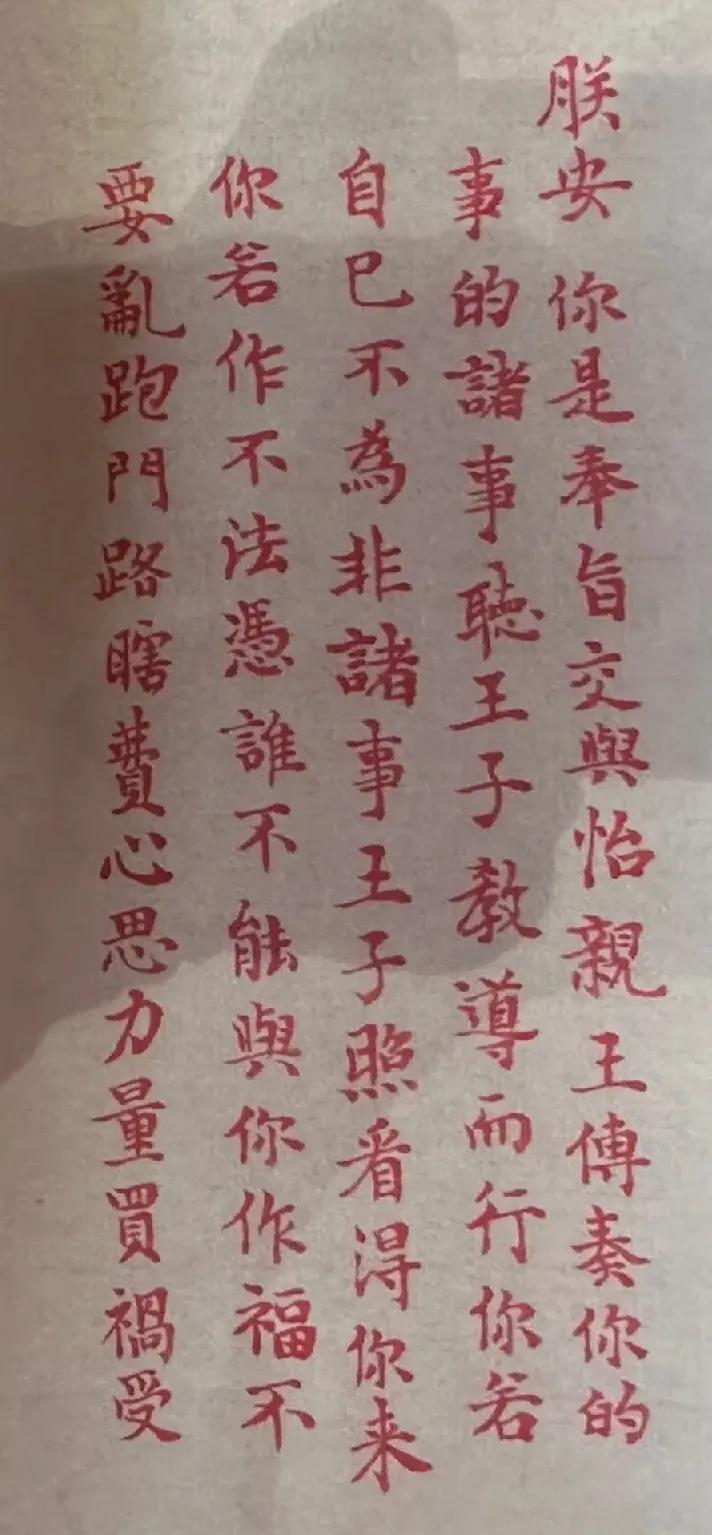 朕安 你是奉旨交與怡親王傳奏你的
事的諸事聽王子教導而行你若
自己不為非諸事王子照看得你来
你若作不法憑誰不能與你作福不
要亂跑門路瞎費心思力量買禍受